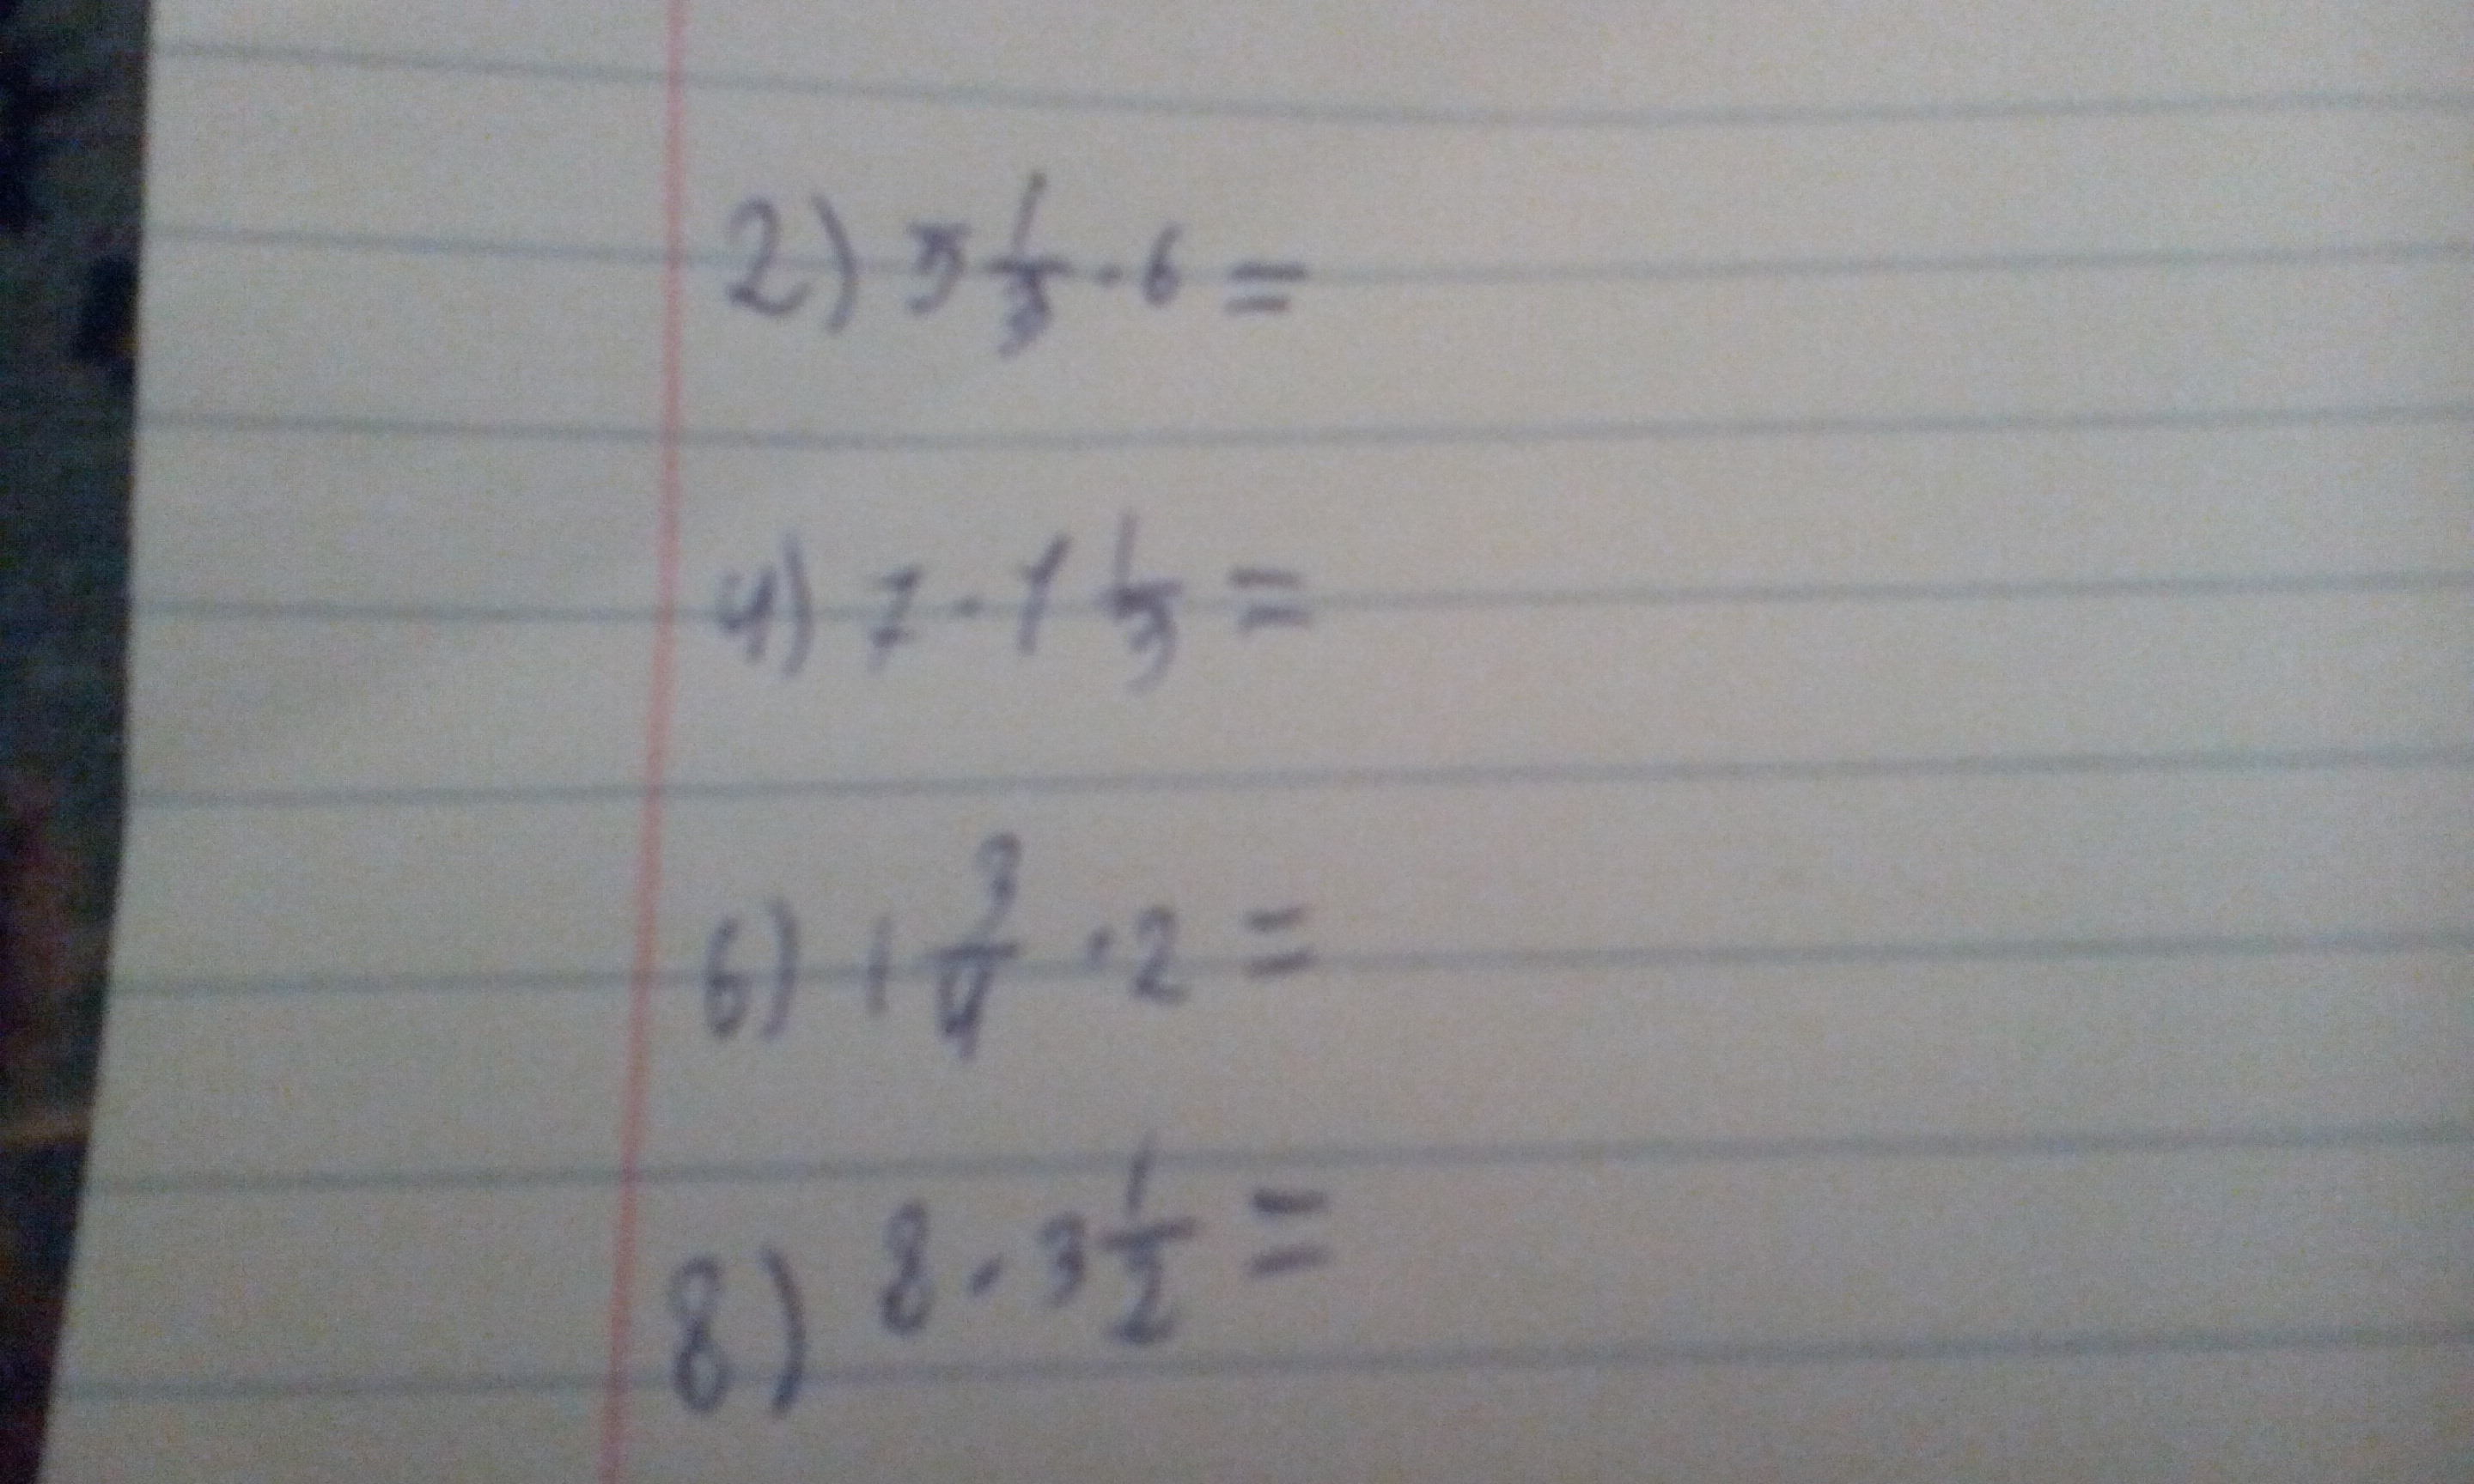 2) 5 1/3 · 6 =
4) 7 · 1 1/5 =
6) 1 3/4 · 2 =
8) 8 · 3 1/2 =